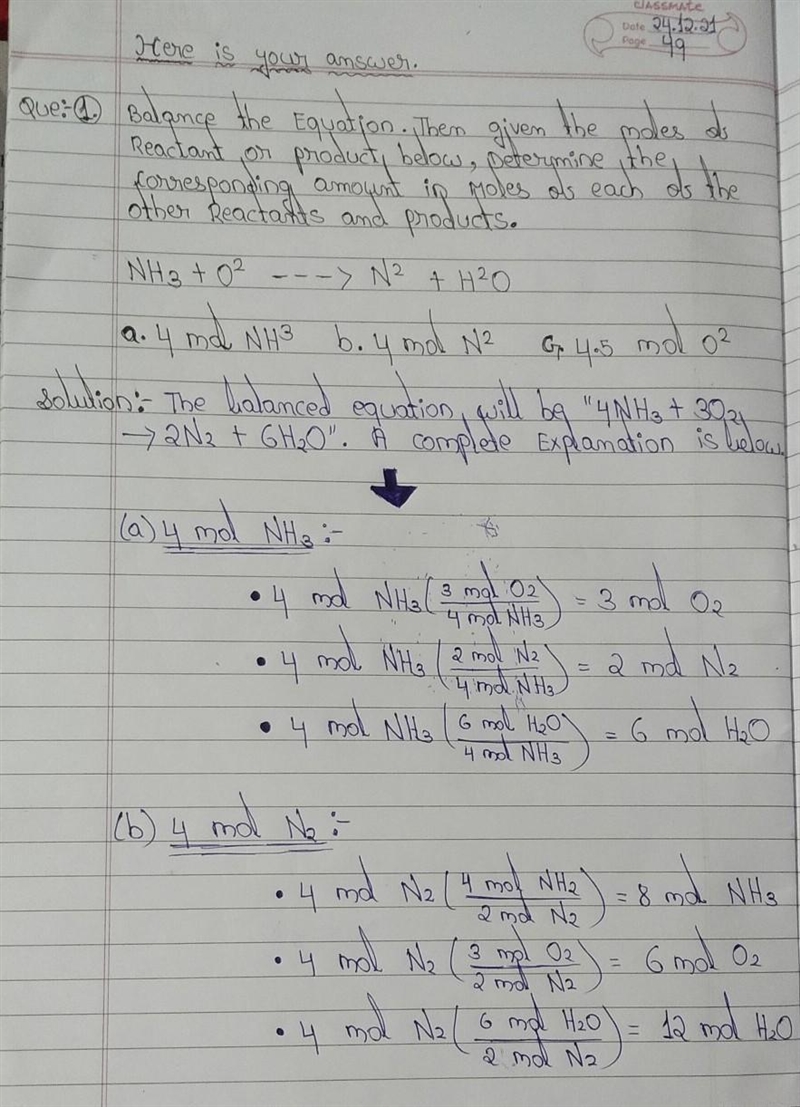 classmate
Date 24.12.21
Page 49
Here is your answer.
Que:-① Balance the Equation. Then given the moles of
Reactant or product below, Determine the
corresponding amount in Moles of each of the
other Reactants and products.
NH₃ + O² ----> N² + H²O
a. 4 mol NH³ b. 4 mol N² C. 4.5 mol O²
Solution:- The balanced equation will be "4NH₃ + 3O₂
→ 2N₂ + 6H₂O". A complete Explanation is below
(a) 4 mol NH₃ :-
• 4 mol NH₃ (3 mol O₂ / 4 mol NH₃) = 3 mol O₂
• 4 mol NH₃ (2 mol N₂ / 4 mol NH₃) = 2 mol N₂
• 4 mol NH₃ (6 mol H₂O / 4 mol NH₃) = 6 mol H₂O
(b) 4 mol N₂ :-
• 4 mol N₂ (4 mol NH₂ / 2 mol N₂) = 8 mol NH₃
• 4 mol N₂ (3 mol O₂ / 2 mol N₂) = 6 mol O₂
• 4 mol N₂ (6 mol H₂O / 2 mol N₂) = 12 mol H₂O